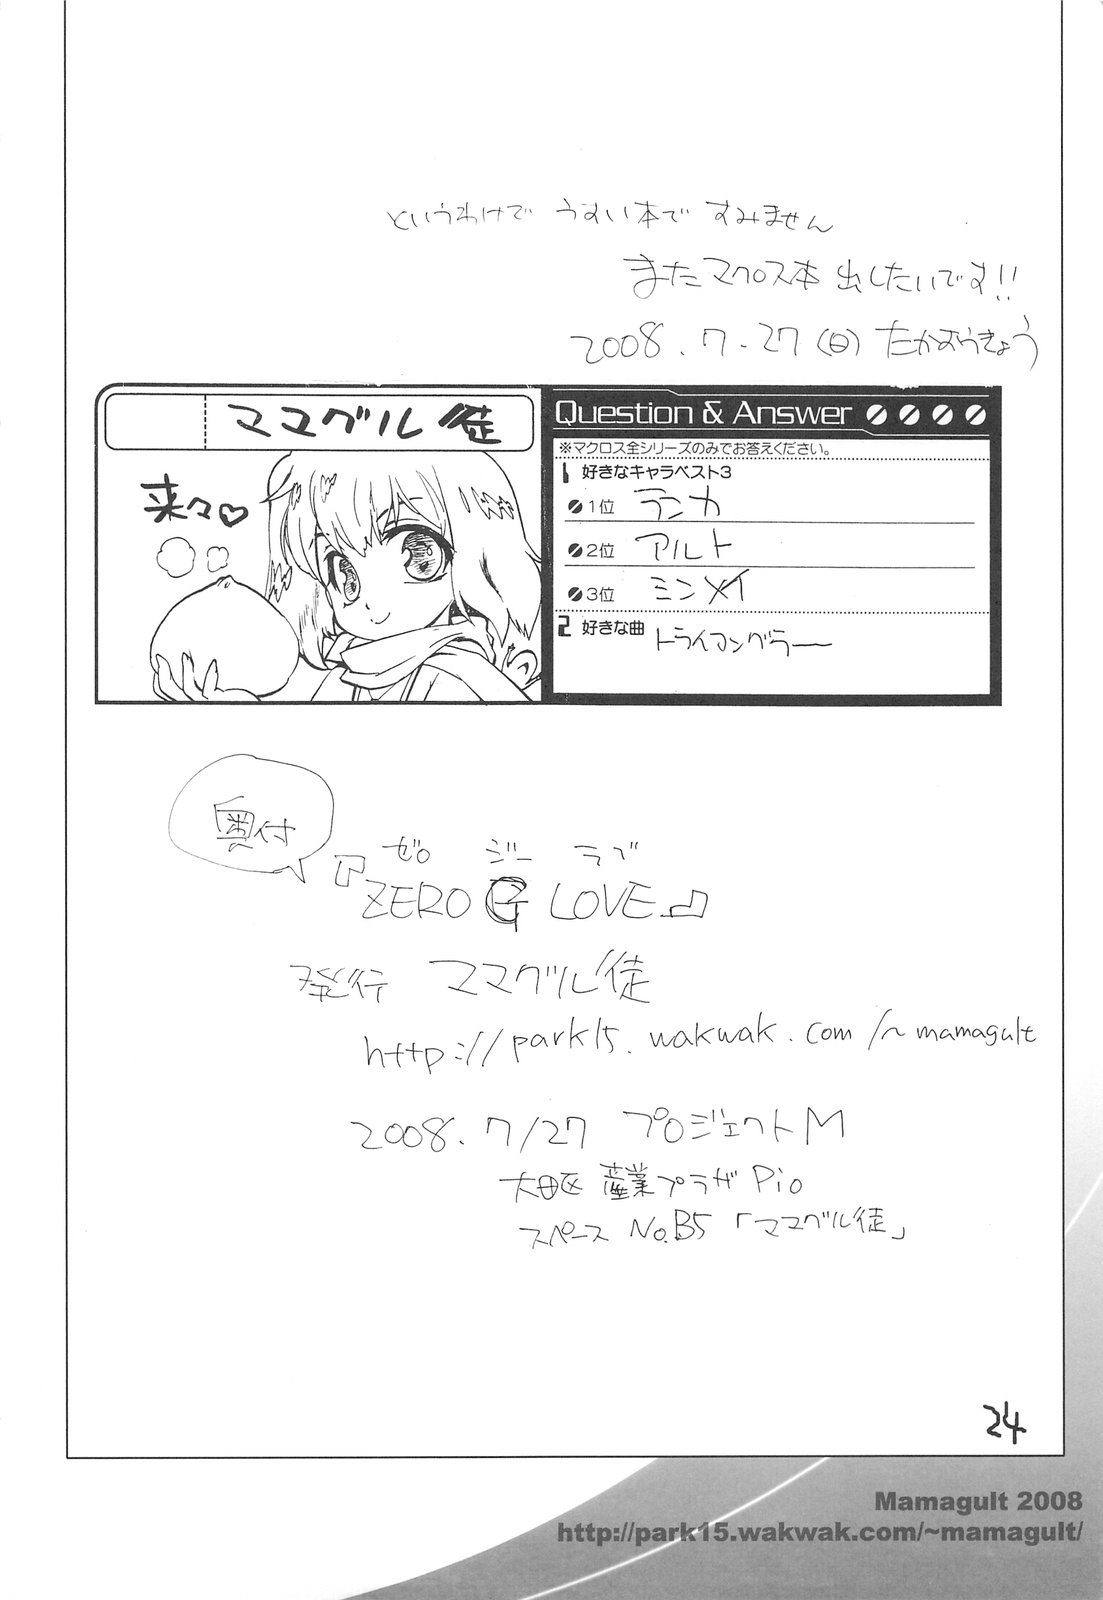 というわけで うすい本で すみません
またマクロス本 出したいです!!
2008.7.27(日) たかむらきょう
ママグル徒
来々♡
Question & Answer
※マクロス全シリーズのみでお答えください。
1 好きなキャラベスト3
1位 ランカ
2位 アルト
3位 ミンメイ
2 好きな曲 トライアングラー
奥付
ゼロ ジー ラブ
『ZERO G LOVE』
発行 ママグル徒
http://park15.wakwak.com/~mamagult
2008.7/27 プロジェクトM
大田区 産業プラザPio
スペース No.B5 「ママグル徒」
24
Mamagult 2008
http://park15.wakwak.com/~mamagult/